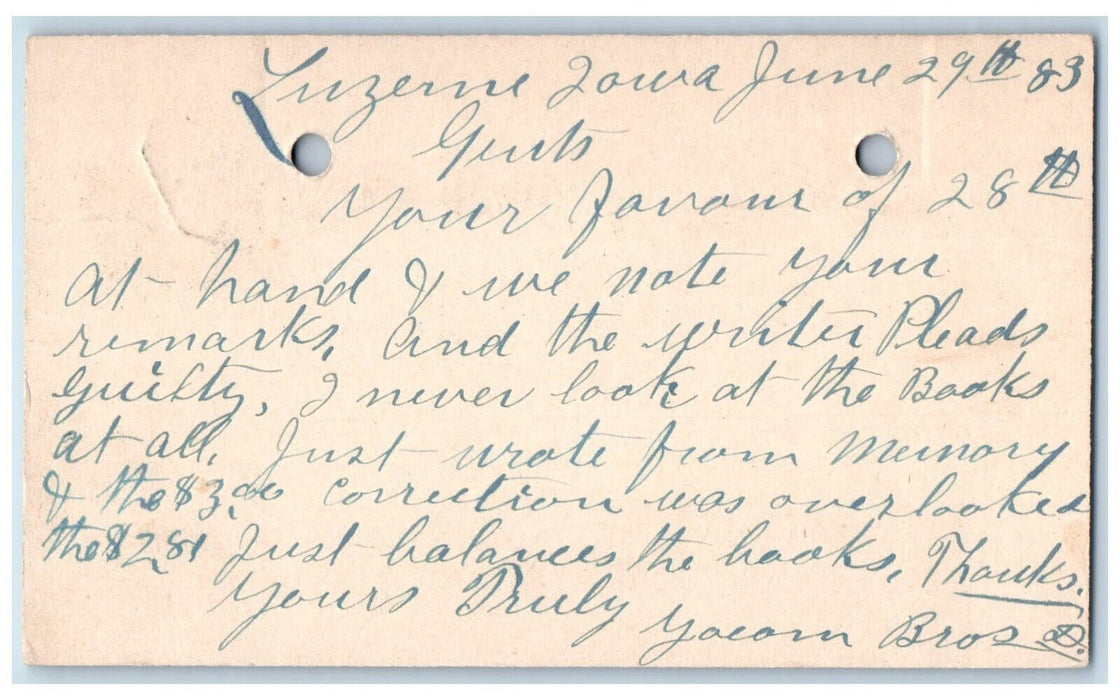 Luzerne Iowa June 29th 83
Gents
Your favour of 28th
at hand & we note your
remarks, and the writer Pleads
guilty, I never look at the Books
at all, Just wrote from memory
& the $3.00 correction was overlooked
the $281 Just balances the books, Thanks.
Yours Truly
Yocom Bros